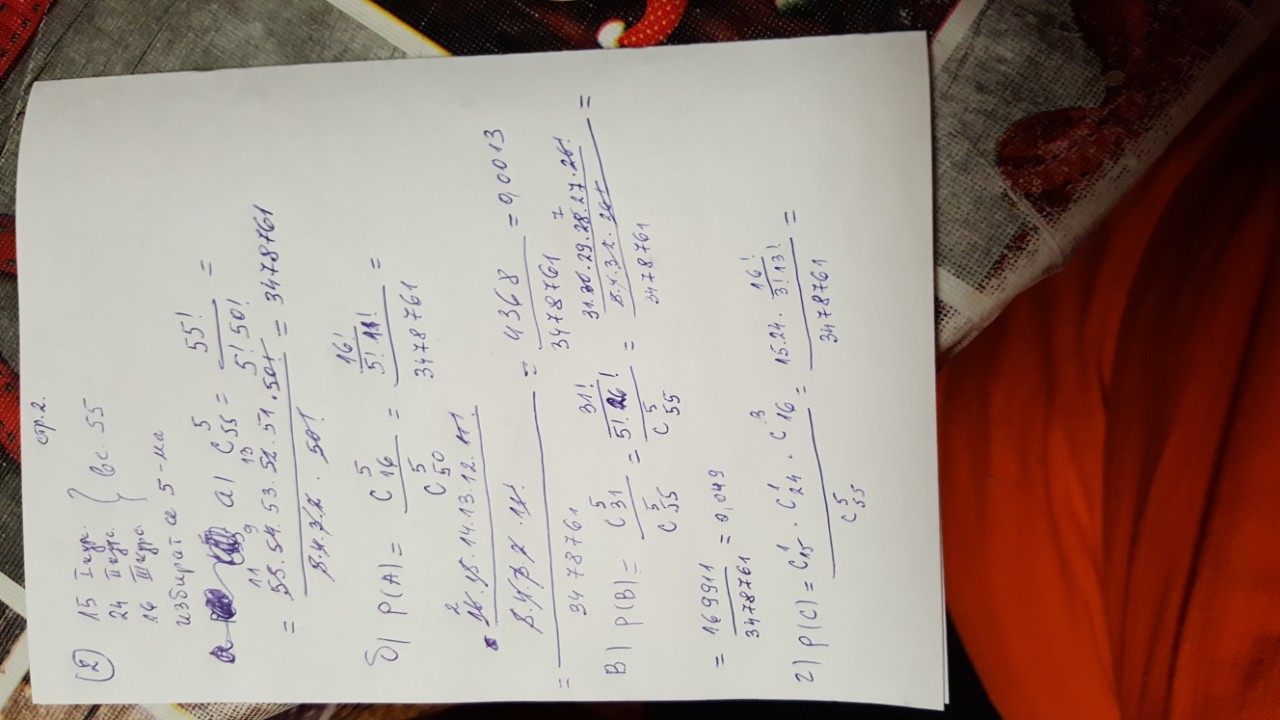 стр. 2.
2
15 I кур.
24 II кур.
16 III кур.
} вс. 55
избират се 5-ма
а) C⁵₅₅ = 55! / 5! 50! =
11 9 13
= 55.54.53.52.51.50! / 5.4.3.2.50! = 3478761
б) P(A) = C⁵₁₆ / C⁵₅₀ = (16! / 5! 11!) / 3478761 =
2
= (16.15.14.13.12.11! / 5.4.3.2.11!) / 3478761 = 4368 / 3478761 = 0,0013
в) P(B) = C⁵₃₁ / C⁵₅₅ = (31! / 5! 26!) / C⁵₅₅ = (31.30.29.28.27.26! / 5.4.3.2.26!) / 3478761 =
7
= 169911 / 3478761 = 0,049
г) P(C) = C¹₁₅ . C¹₂₄ . C³₁₆ / C⁵₅₅ = (15.24. 16! / 3! 13!) / 3478761 =